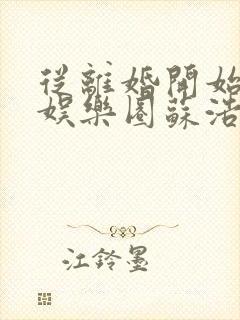 從離婚開始
娛樂圈蘇浩
江鈴墨